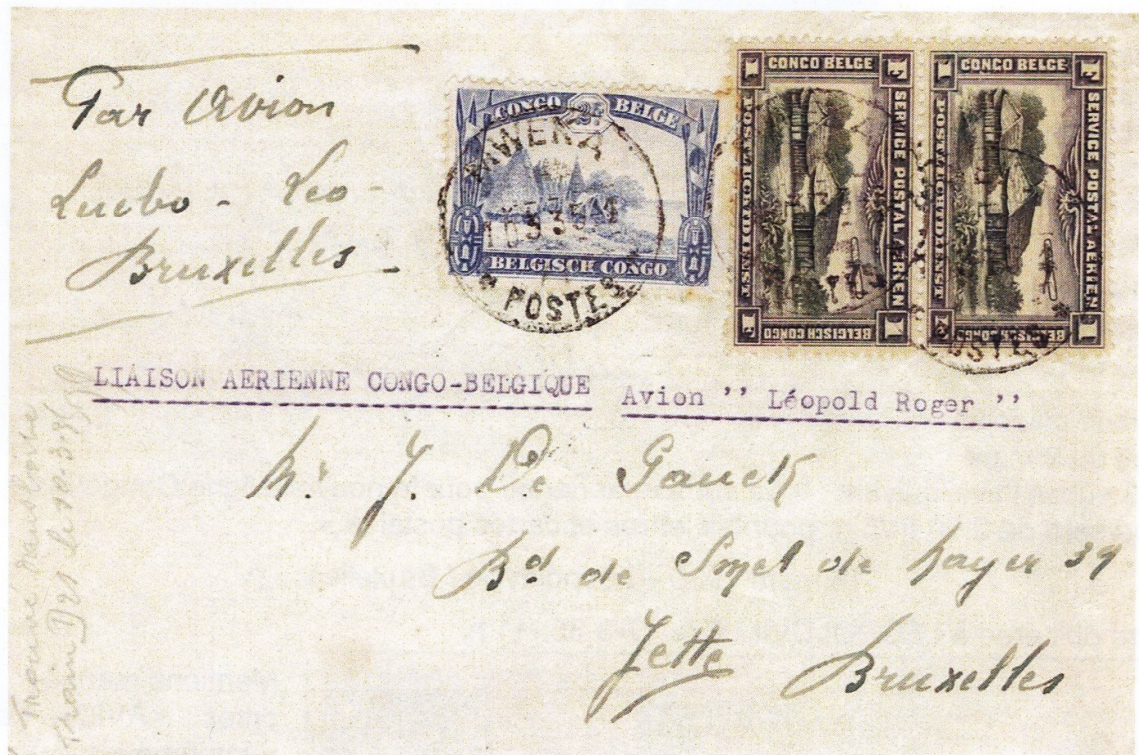 Par Avion
Luebo - Leo -
Bruxelles
CONGO BELGE
BELGISCH CONGO
MWEKA
POSTES
1 CONGO BELGE F
SERVICE POSTAL AÉRIEN
POSTVLIEGDIENST
F BELGISCH CONGO 1
1 CONGO BELGE F
SERVICE POSTAL AÉRIEN
POSTVLIEGDIENST
F BELGISCH CONGO 1
POSTES
LIAISON AERIENNE CONGO-BELGIQUE Avion '' Léopold Roger ''
Mr J. De Gauck
Bd de Smet de Nayer 39
Jette Bruxelles
Trouvé dans
train